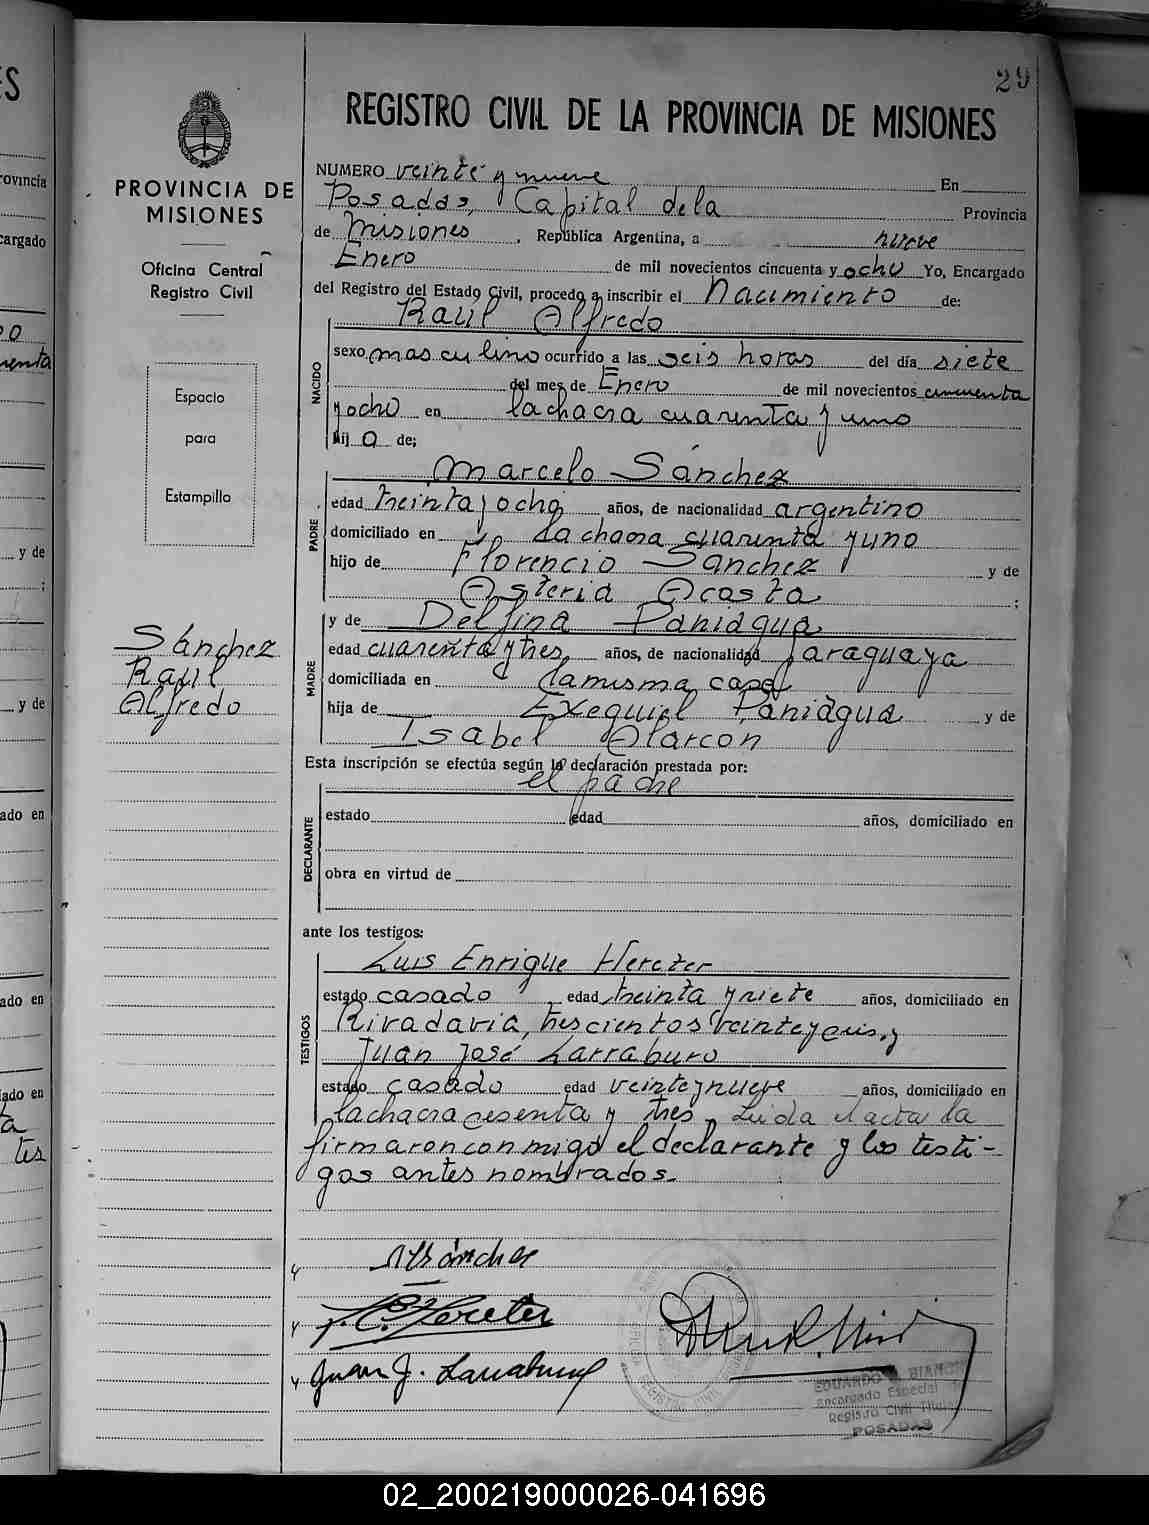 29
REGISTRO CIVIL DE LA PROVINCIA DE MISIONES
PROVINCIA DE
MISIONES
Oficina Central
Registro Civil
Espacio
para
Estampilla
Sánchez
Raúl
Alfredo
NUMERO veinte y nueve En
Posadas, Capital de la Provincia
de Misiones, República Argentina, a nueve
Enero de mil novecientos cincuenta y ocho Yo, Encargado
del Registro del Estado Civil, procedo a inscribir el Nacimiento de:
Raúl Alfredo
NACIDO
sexo masculino ocurrido a las seis horas del día siete
del mes de Enero de mil novecientos cincuenta
y ocho en la chacra cuarenta y uno
hij o de;
Marcelo Sánchez
PADRE
edad treinta y ocho años, de nacionalidad argentino
domiciliado en La chacra cuarenta y uno
hijo de Florencio Sánchez y de
Asteria Acosta ;
y de Delfina Paniagua
MADRE
edad cuarenta y tres años, de nacionalidad paraguaya
domiciliada en la misma casa
hija de Exequiel Paniágua y de
Isabel Alarcon
Esta inscripción se efectúa según la declaración prestada por:
el padre
DECLARANTE
estado edad años, domiciliado en
obra en virtud de
ante los testigos:
Luis Enrique Hereter
TESTIGOS
estado casado edad treinta y siete años, domiciliado en
Rivadavia, trescientos veinte y seis, y
Juan José Larraburo
estado casado edad veinte y nueve años, domiciliado en
la chacra cesenta y tres. Leida el acta la
firmaron conmigo el declarante y los testi-
gos antes nombrados.
Sánchez
Hereter
Juan J. Larraburu
EDUARDO BIANCHI
Encargado Especial
Registro Civil
POSADAS
02_200219000026-041696